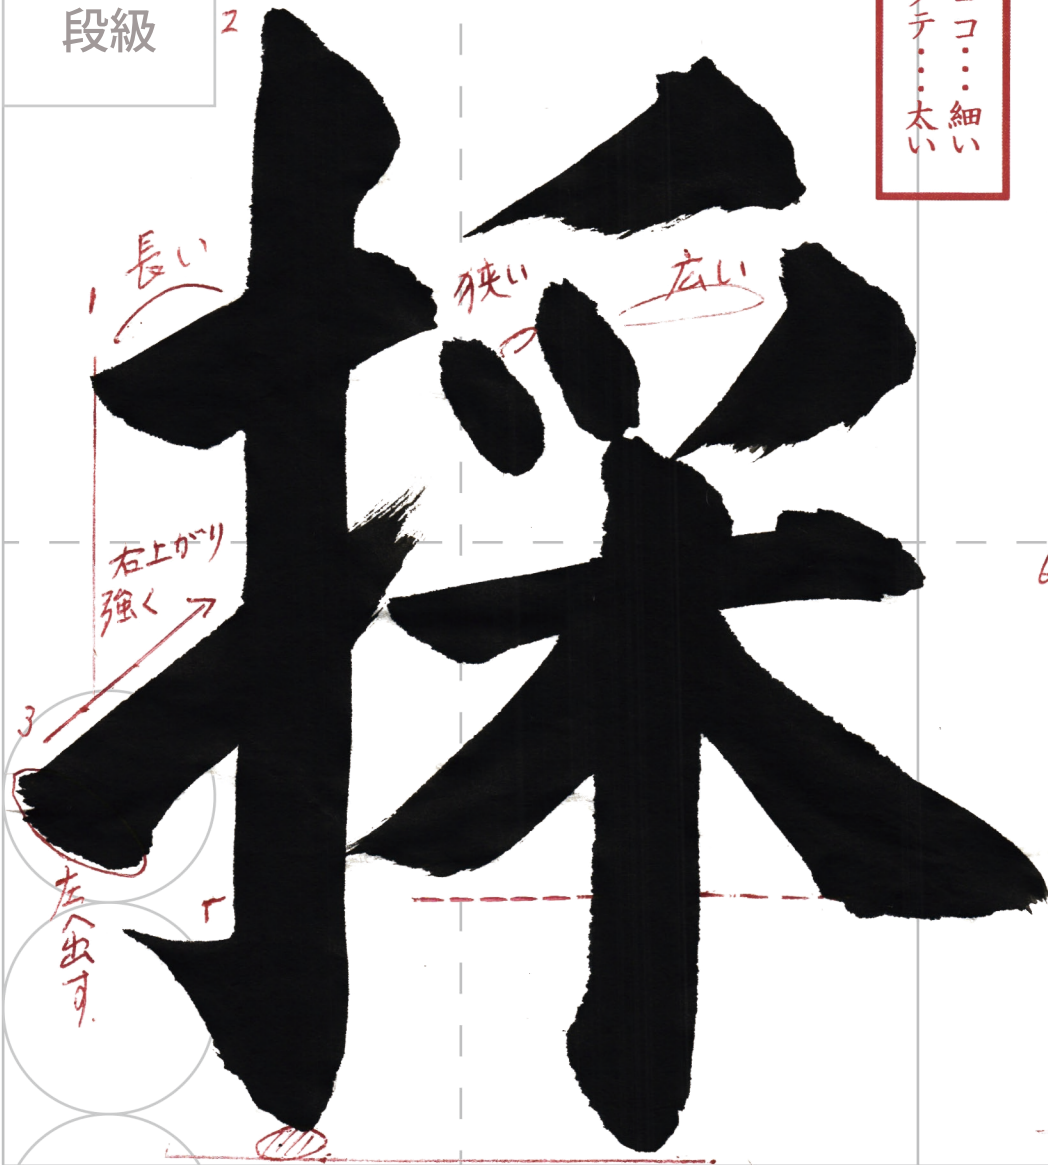 段級
2
コ・・・細い
テ・・・・太い
採
長い
1
狭い
広い
右上がり
強く
3
左へ出す